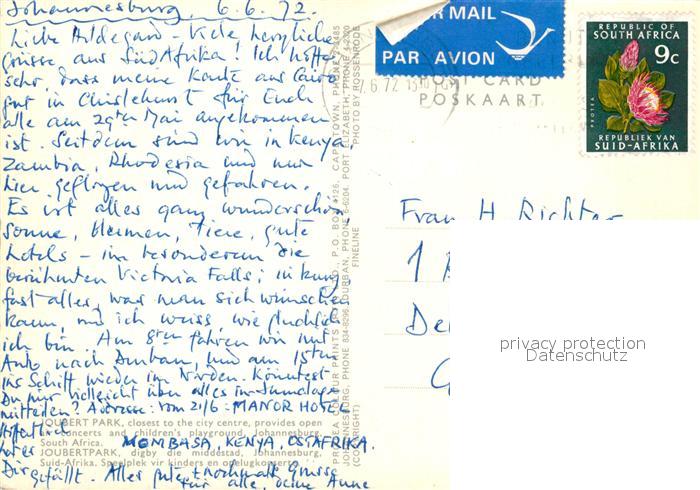 Johannesburg, 6.6.72.
Liebe Hildegard - Viele herzliche
Grüsse aus Südafrika! Ich hoffe
sehr, dass meine Karte aus Cairo
gut in Chislehurst für Euch
alle am 29ten Mai angekommen
ist. Seitdem sind wir in Kenya,
Zambia, Rhodesia und nun
hier geflogen und gefahren.
Es ist alles ganz wunderschön
Sonne, Blumen, Tiere, gute
Hotels - im besonderen die
berühmten Victoria Falls; in kurz,
fast alles, was man sich wünschen
kann, und ich weiss, wie glücklich
ich bin. Am 8ten fahren wir mit
Auto nach Durban, und am 15ten
ins Schiff wieder im Norden. Könntest
Du mir vielleicht über alles in
mitteilen? Adresse: vom 21/6: MANOR HOTEL
MOMBASA, KENYA, OSTAFRIKA.
Hoffentlich
hier
Dir gefällt. Alles gute & nochmals Grüsse
für alle, Deine Anne
JOUBERT PARK, closest to the city centre, provides open
air concerts and children's playground, Johannesburg,
South Africa.
JOUBERTPARK, digby die middestad, Johannesburg,
Suid-Afrika. Speelplek vir kinders en opelugkonserte.
COLOUR PRINTS P.O. BOX 4126, CAPETOWN, PHONE
JOHANNESBURG, PHONE 834-8296, DURBAN, PHONE 6-6204, PORT ELIZABETH, PHONE
(COPYRIGHT) FINELINE PHOTO BY ROSSENRODE
AIR MAIL
PAR AVION
6 72
POST CARD
POSKAART
REPUBLIC OF
SOUTH AFRICA
9c
PROTEA
REPUBLIEK VAN
SUID-AFRIKA
Frau H. Richter
1
De
G
privacy protection
Datenschutz